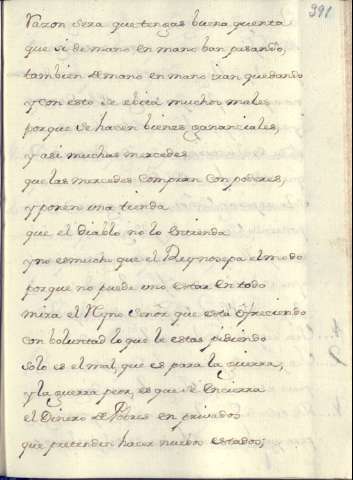 391
razon sera que tengas buena quenta
que si de mano en mano ban pasando,
tambien de mano en mano iran quedando
y con esto se ebitã muchos males
porque se hacen bienes gananciales,
y asi muchas mercedes
que las mercedes compran con poderes,
y ponen una tienda
que el diablo no lo entienda
y no es mucho que el Rey no sepa el modo
porque no puede uno estar en todo
mira el Reyno Señor que está ofreciendo
con boluntad lo que le estas pidiendo
solo es el mal, que es para la guerra,
y la guerra peor, es que se encierra
el Dinero de Pobres en privados
que pretenden hacer nuebos estados;